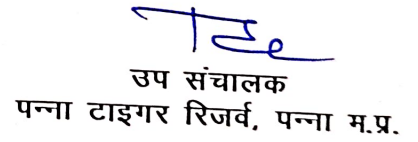 उप संचालक
पन्ना टाइगर रिजर्व, पन्ना म.प्र.